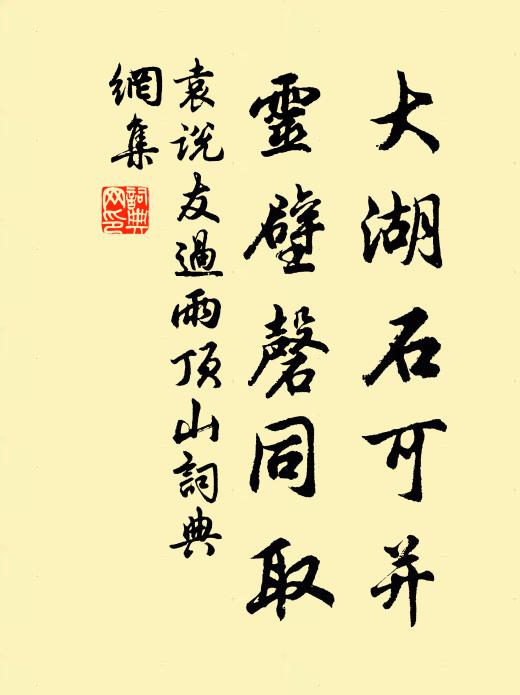 大湖石可并
靈壁磬同取
袁說友過雨頂山詞典
網集
詞典
网印